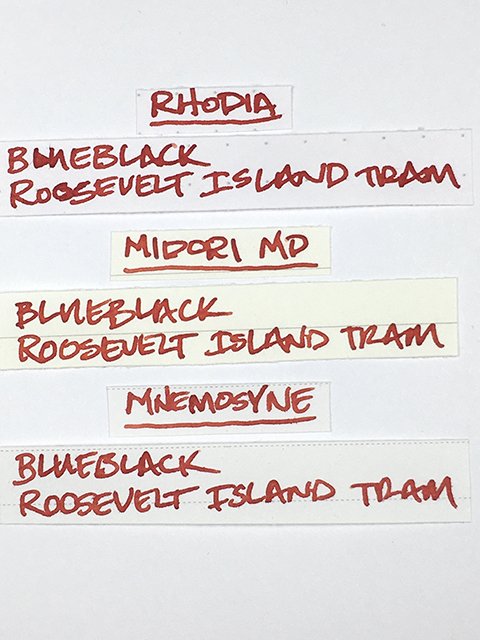 RHODIA
BLUEBLACK
ROOSEVELT ISLAND TRAM
MIDORI MD
BLUEBLACK
ROOSEVELT ISLAND TRAM
MNEMOSYNE
BLUEBLACK
ROOSEVELT ISLAND TRAM